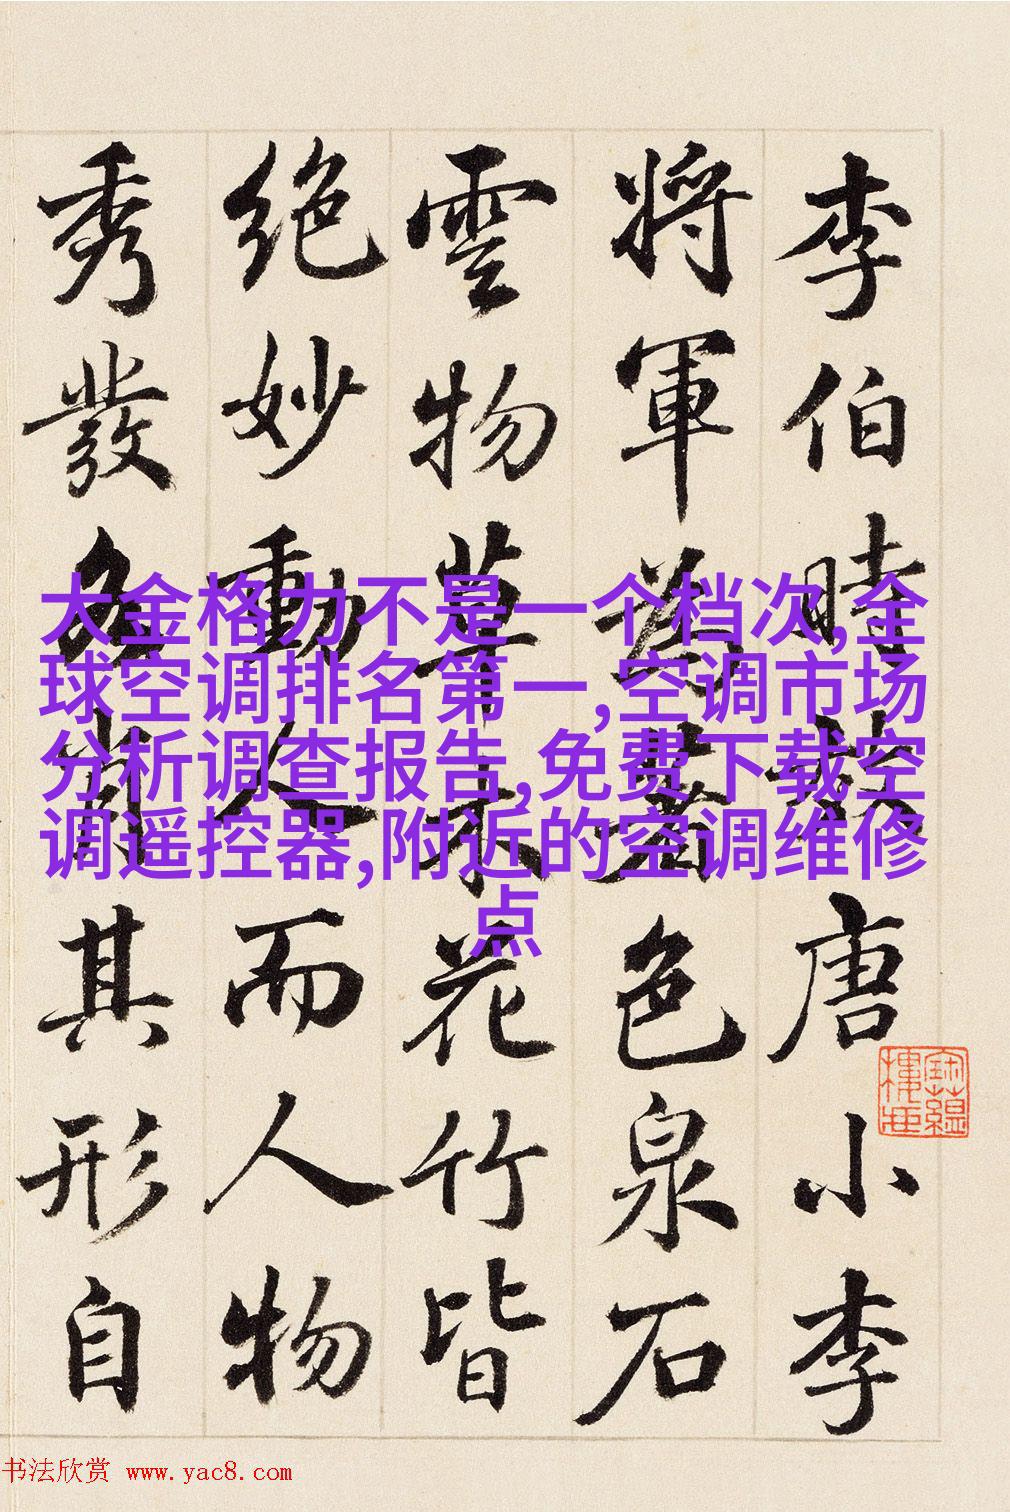 李伯時效唐小李
將軍為著色泉石
雲物草木花竹皆
絕妙動人而人物
秀發各肖其形自
大金格力不是一个档次,全
球空调排名第一,空调市场
分析调查报告,免费下载空
调遥控器,附近的空调维修
点
书法欣赏 www.yac8.com